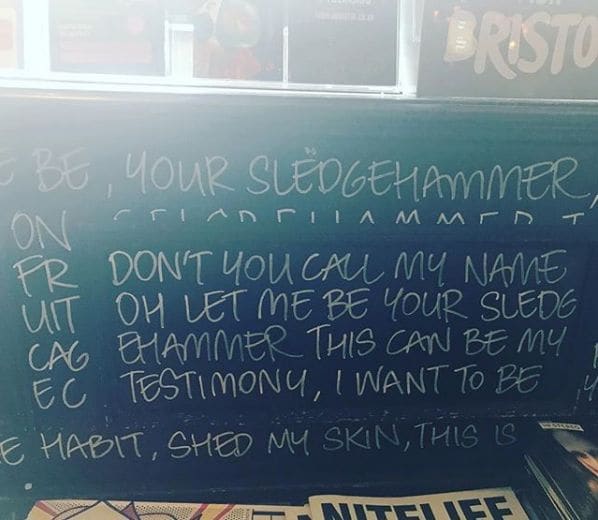 BRISTO
E BE, YOUR SLEDGEHAMMER,
ON
FR DON'T YOU CALL MY NAME
UIT OH LET ME BE YOUR SLEDG
CAG EHAMMER THIS CAN BE MY
EC TESTIMONY, I WANT TO BE
E HABIT, SHED MY SKIN, THIS IS
NITELIFE